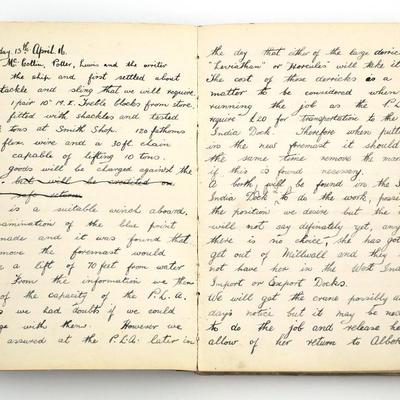 day, 15th April 16.
Mc Collin, Potter, Lewis and the writer
the ship and first settled about
tackle and sling that we will require
1 pair 10" M.I. Treble blocks from store,
fitted with shackles and tested
tons at Smith Shop. 120 fathoms
flex wire and a 30ft chain
capable of lifting 10 tons.
goods will be charged against the
but will be credited on
safe return
is a suitable winch aboard.
examination of the blue print
made and it was found that
move the foremast would
a lift of 70 feet from water
From the information we then
of the capacity of the P.L.A.
we had doubts if we could
with them. However we
assured at the P.L.A. later in
the day that either of the large derrick
"Leviathan" or "Hercules" will take it
The cost of those derricks is a
matter to be considered when
running the job as the P.L.
require £20 for transportation to the
India Dock. Therefore when putti
in the new foremast it should
the same time remove the mai
if this is found necessary.
A berth will be found in the
India Dock to do the work, possi
the position we desire but the
will not say definately yet, any
there is no choice, she has got
get out of Millwall and they
not have her in the West Indi
Import or Export Docks.
We will get the crane possibly a
day's notice but it may be nec
to do the job and release he
allow of her return to